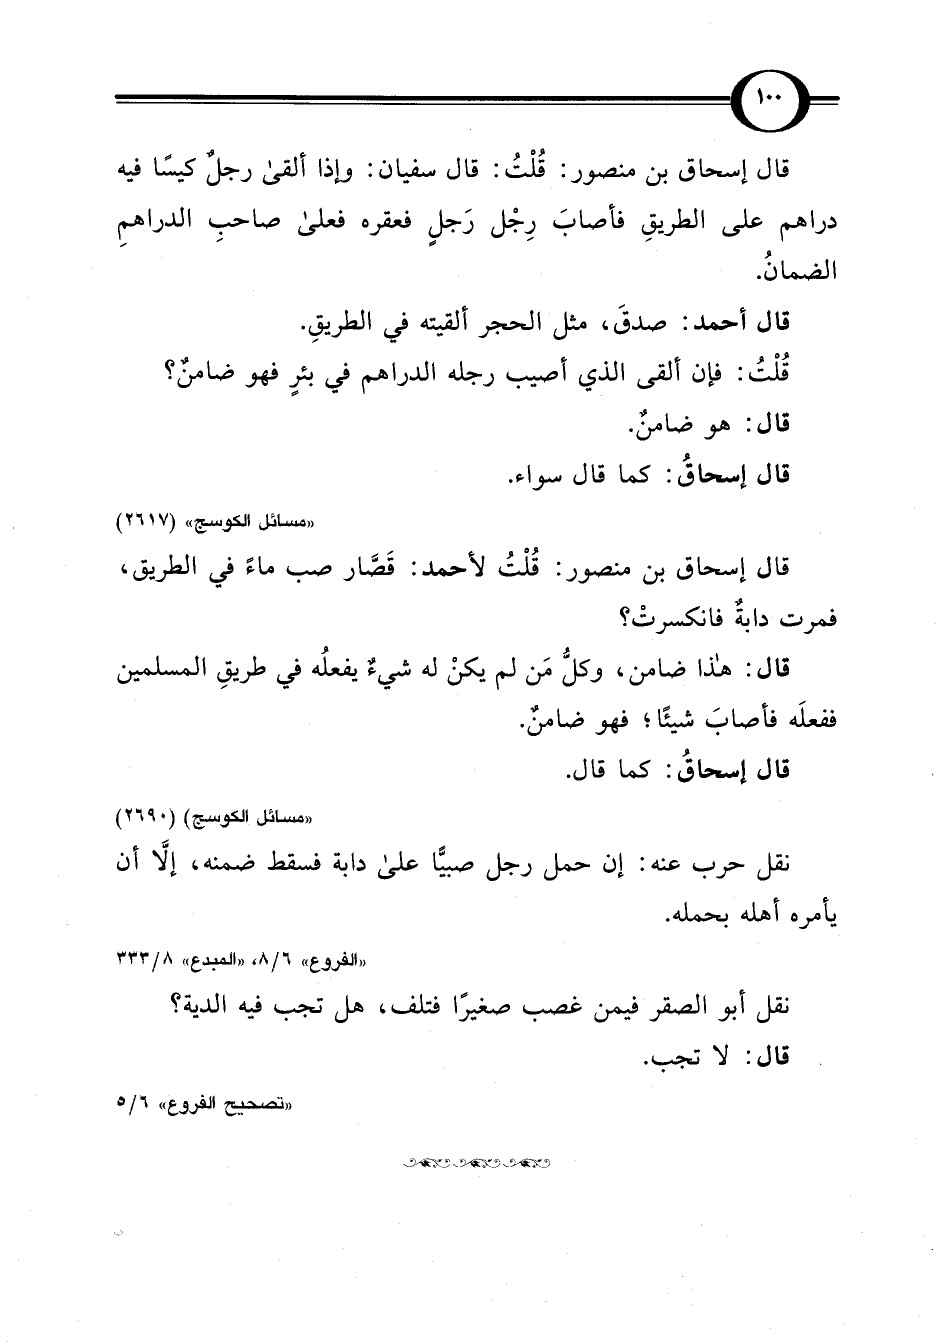 ١٠٠
قال إسحاق بن منصور: قُلْتُ: قال سفيان: وإذا ألقىٰ رجلٌ كيسًا فيه
دراهم على الطريقِ فأصابَ رِجْل رَجلٍ فعقره فعلىٰ صاحبِ الدراهمِ
الضمانُ.
قال أحمد: صدقَ، مثل الحجر ألقيته في الطريقِ.
قُلْتُ: فإن ألقى الذي أصيب رجله الدراهم في بئرٍ فهو ضامنٌ؟
قال: هو ضامنٌ.
قال إسحاقُ: كما قال سواء.
«مسائل الكوسج» (٢٦١٧)
قال إسحاق بن منصور: قُلْتُ لأحمد: قَصَّار صب ماءً في الطريق،
فمرت دابةٌ فانكسرتْ؟
قال: هذا ضامن، وكلُّ مَن لم يكنْ له شيءٌ يفعلُه في طريقِ المسلمين
ففعلَه فأصابَ شيئًا؛ فهو ضامنٌ.
قال إسحاقُ: كما قال.
«مسائل الكوسج) (٢٦٩٠)
نقل حرب عنه: إن حمل رجل صبيًّا علىٰ دابة فسقط ضمنه، إلَّا أن
يأمره أهله بحمله.
«الفروع» ٨/٦، «المبدع» ٣٣٣/٨
نقل أبو الصقر فيمن غصب صغيرًا فتلف، هل تجب فيه الدية؟
قال: لا تجب.
«تصحيح الفروع» ٥/٦